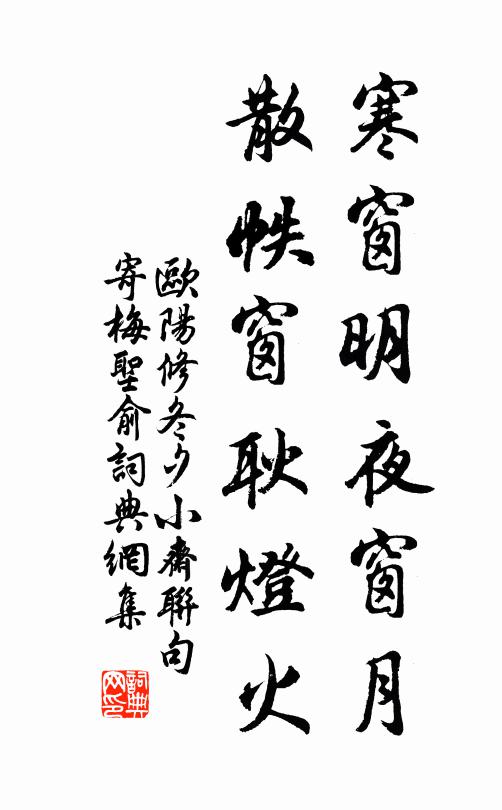 寒窗明夜窗月
散帙窗耿燈火
歐陽修冬夕小齋聯句
寄梅聖俞詞典網集
詞典网印